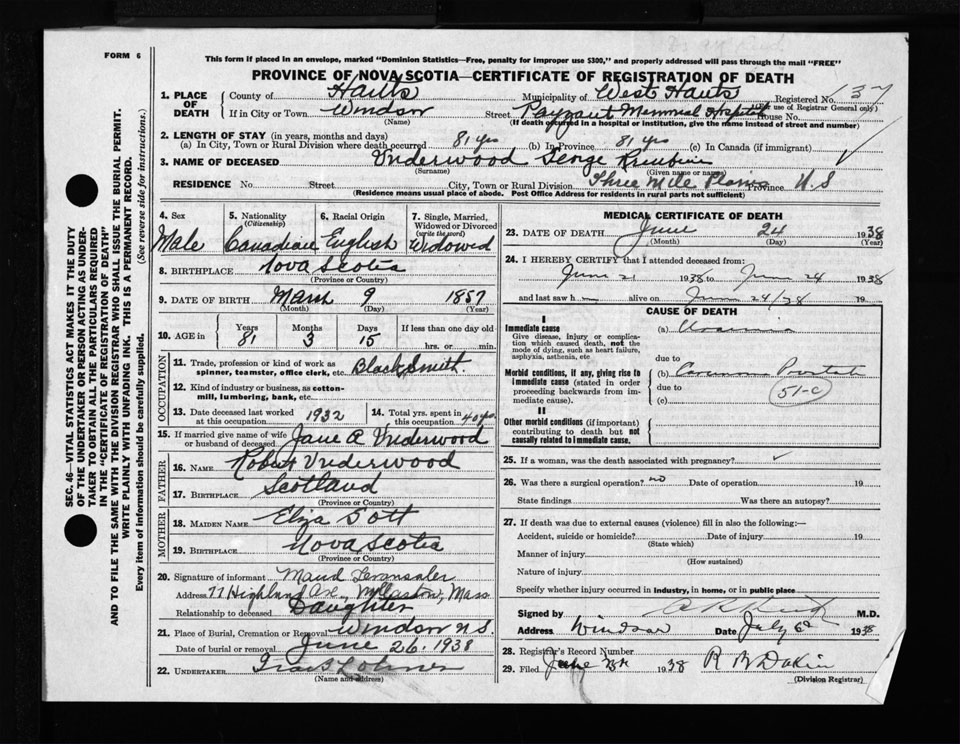 FORM 6
This form if placed in an envelope, marked "Dominion Statistics—Free, penalty for improper use $300," and properly addressed will pass through the mail "FREE"
PROVINCE OF NOVA SCOTIA—CERTIFICATE OF REGISTRATION OF DEATH
1. PLACE OF DEATH County of Hants Municipality of West Hants Registered No. 137
(For use of Registrar General only)
If in City or Town Windsor Street Payzant Memorial Hospital House No.
(Name) (If death occurred in a hospital or institution, give the name instead of street and number)
2. LENGTH OF STAY (in years, months and days)
(a) In City, Town or Rural Division where death occurred 81 yrs (b) In Province 81 yrs (c) In Canada (if immigrant)
3. NAME OF DECEASED Underwood George
(Surname) (Given name or names)
RESIDENCE No. Street City, Town or Rural Division Three Mile Plains Province N.S
(Residence means usual place of abode. Post Office Address for residents in rural parts not sufficient)
SEC. 46—VITAL STATISTICS ACT MAKES IT THE DUTY
OF THE UNDERTAKER OR PERSON ACTING AS UNDER-
TAKER TO OBTAIN ALL THE PARTICULARS REQUIRED
IN THE "CERTIFICATE OF REGISTRATION OF DEATH"
AND TO FILE THE SAME WITH THE DIVISION REGISTRAR WHO SHALL ISSUE THE BURIAL PERMIT.
WRITE PLAINLY WITH UNFADING INK. THIS IS A PERMANENT RECORD.
Every item of information should be carefully supplied. (See reverse side for instructions.)
4. Sex 5. Nationality (Citizenship) 6. Racial Origin 7. Single, Married, Widowed or Divorced (write the word)
Male Canadian English Widowed
8. BIRTHPLACE Nova Scotia
(Province or Country)
9. DATE OF BIRTH March 9 1857
(Month) (Day) (Year)
10. AGE in Years Months Days If less than one day old
81 3 15 hrs. or min.
OCCUPATION
11. Trade, profession or kind of work as spinner, teamster, office clerk, etc. Blacksmith
12. Kind of industry or business, as cotton-mill, lumbering, bank, etc.
13. Date deceased last worked at this occupation 1932 14. Total yrs. spent in 40 yrs.
15. If married give name of wife or husband of deceased Jane A Underwood
FATHER
16. NAME Robert Underwood
17. BIRTHPLACE Scotland
(Province or Country)
MOTHER
18. MAIDEN NAME Eliza
19. BIRTHPLACE Nova Scotia
(Province or Country)
20. Signature of informant Maud
Address 77 Highland Ave., Mass
Relationship to deceased Daughter
21. Place of Burial, Cremation or Removal Windsor N S.
Date of burial or removal June 26. 1938
22. UNDERTAKER
(Name and address)
MEDICAL CERTIFICATE OF DEATH
23. DATE OF DEATH June 24 1938
(Month) (Day) (Year)
24. I HEREBY CERTIFY that I attended deceased from:
June 21 1938 to June 24 1938
and last saw h m alive on June 24/38 19
CAUSE OF DEATH
I
Immediate cause (a) Uraemia
Give disease, injury or complication which caused death, not the mode of dying, such as heart failure, asphyxia, asthenia, etc due to
Morbid conditions, if any, giving rise to immediate cause (stated in order proceeding backwards from immediate cause). (b)
due to
(c) 51-c
II
Other morbid conditions (if important) contributing to death but not causally related to immediate cause.
25. If a woman, was the death associated with pregnancy?
26. Was there a surgical operation? no Date of operation 19
State findings Was there an autopsy?
27. If death was due to external causes (violence) fill in also the following:—
Accident, suicide or homicide? Date of injury 19
(State which)
Manner of injury
(How sustained)
Nature of injury
Specify whether injury occurred in industry, in home, or in public place
Signed by M.D.
Address Windsor Date July 6 1938
28. Registrar's Record Number
29. Filed 1938 R B Dakin
(Division Registrar)